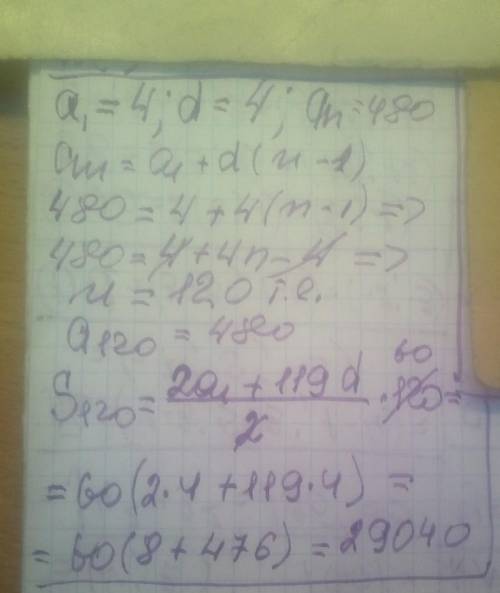 a₁ = 4; d = 4; aₙ = 480
aₙ = a₁ + d(n - 1)
480 = 4 + 4(n - 1) =>
480 = 4 + 4n - 4 =>
n = 120 т.е.
a₁₂₀ = 480
S₁₂₀ = (2a₁ + 119d)/2 · 120 = 60
= 60(2·4 + 119·4) =
= 60(8 + 476) = 29040